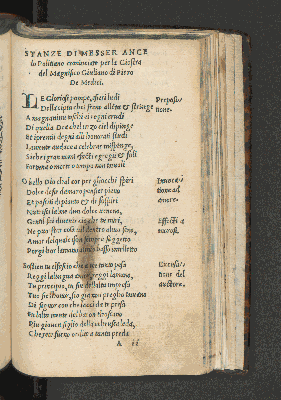 STANZE DI MESSER ANGE
lo Politiano cominciate per la Giostra
del Magnifico Giuliano di Piero
De Medici.
LE Gloriose pompe, e fieri ludi
Della citta che'l freno allẽta & stringe
A magnanimi
Di quella Dea che'l terzo ciel dipinge
Et i premii degni alli honorati studi
La mente audace a celebrar mi spinge,
Si che i gran nomi
Fortuna o morte o tempo non
Proposi-
tione.
O bello Dio ch'al cor per gliocchi spiri
Dolce desir d'amaro pensier pieno
Et pasciti di pianto & di sospiri
Nutrisci le
Gentil fai divenir cio che tu miri,
Ne puo star cosa vil dentro al suo seno,
Amor del quale i son sempre suggetto
Porgi hor la mano al mio basso intelletto
Invocati
Amore.
Effetti a
morosi.
Sostien tu el fascio che a me tanto pesa
Reggi la lingua amor reggi la mano,
Tu principio, tu fin dell'alta impresa
Tuo fia l'honor, s'io gia non prego invano
Di signor con che lacci da te presa
Fu l'alta mente del baron
Piu giovan figlio della
Che reti furno ordite a tanta preda.
Escusa-
tione del
auctore.
A ii